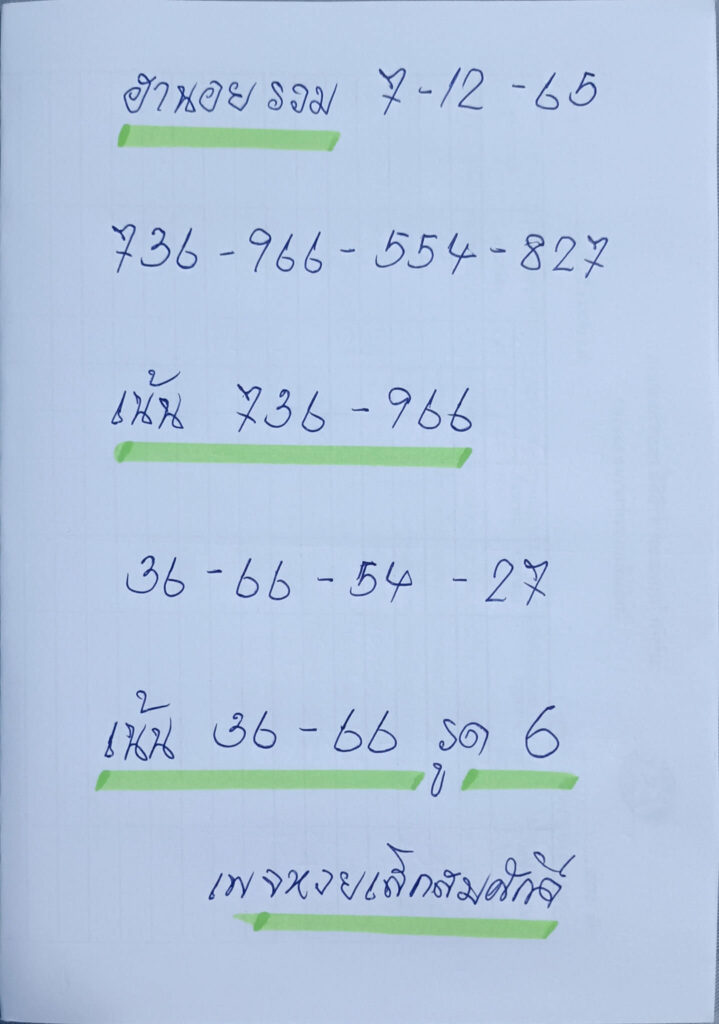 ฮานอย รวม 7-12-65
736-966-554-827
เน้น 736-966
36-66-54-27
เน้น 36-66 รูด 6
เพจหวยเล็กสมศักดิ์